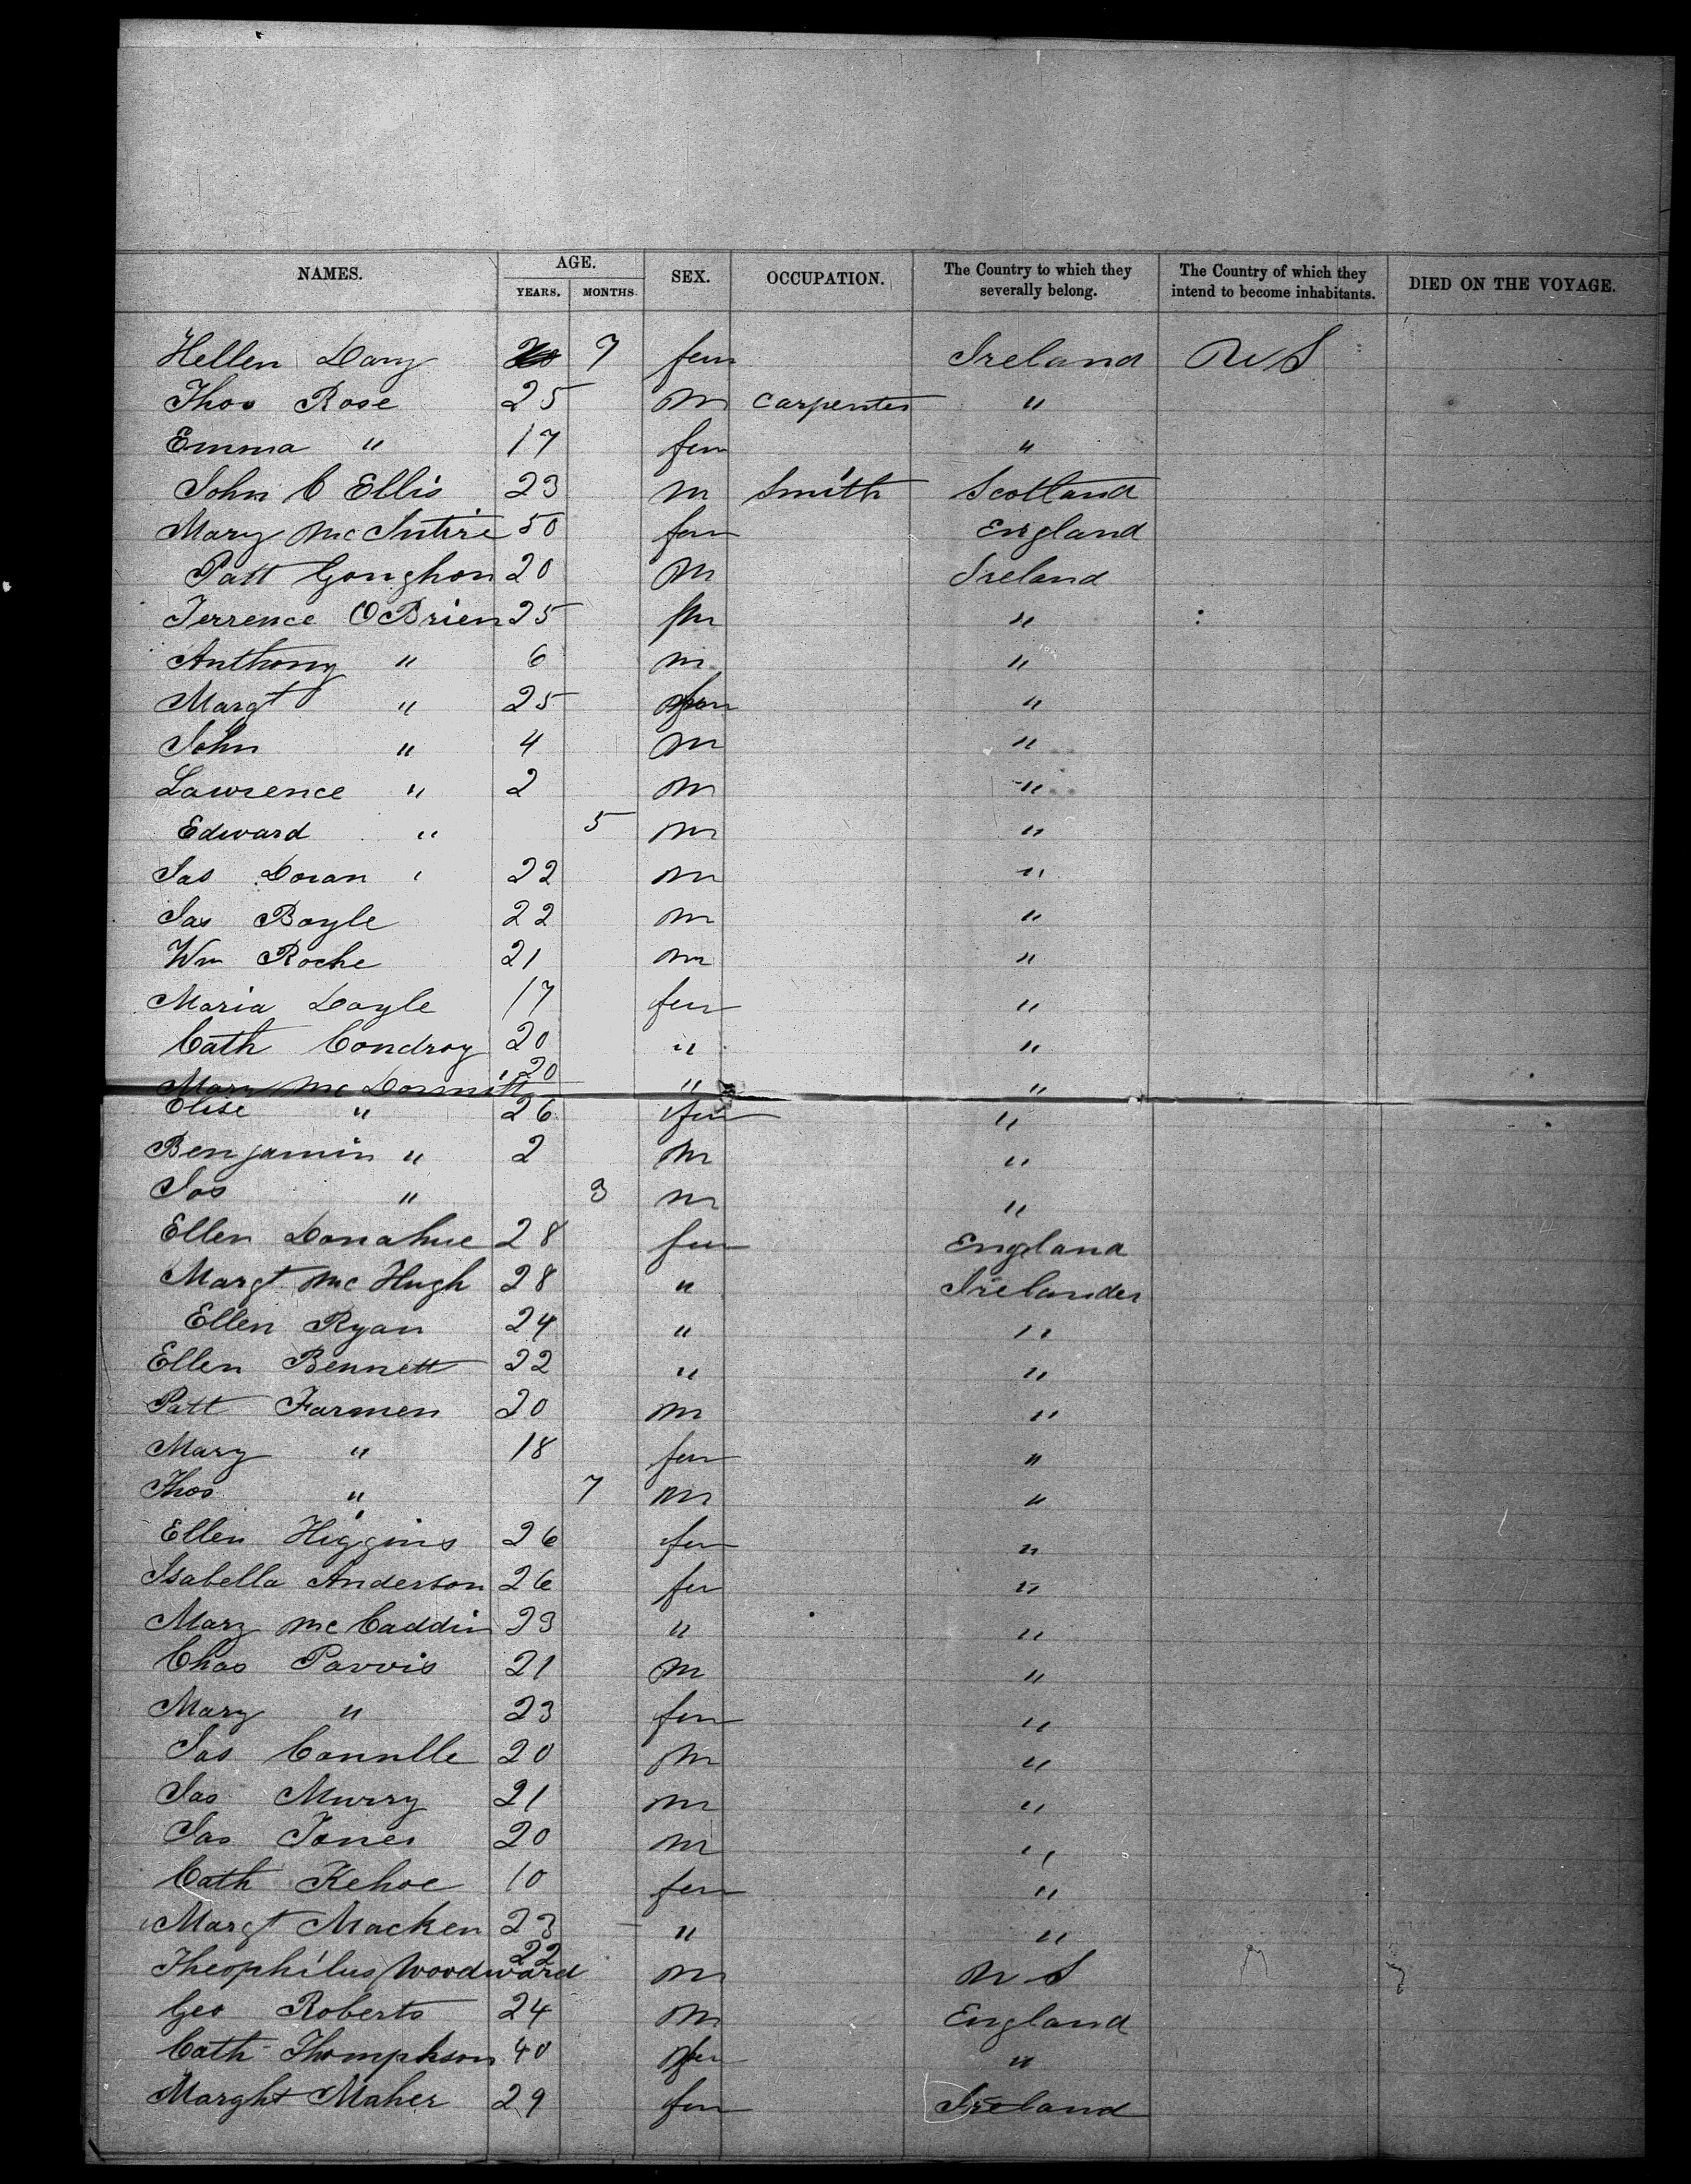 NAMES. AGE. SEX. OCCUPATION. The Country to which they severally belong. The Country of which they intend to become inhabitants. DIED ON THE VOYAGE.
YEARS. MONTHS.
Hellen Dary 7 fem Ireland U S
Thos Rose 25 m carpenter "
Emma " 17 fem "
John C Ellis 23 m Smith Scotland
Mary McIntire 50 fem England
Patt Gonghon 20 m Ireland
Terrence OBrien 25 m "
Anthony " 6 m "
Margt " 25 fem "
John " 4 m "
Lawrence " 2 m "
Edward " 5 m "
Jas Doran 22 m "
Jas Boyle 22 m "
Wm Roche 21 m "
Maria Doyle 17 fem "
Cath Condroy 20 " "
Mary McDormitt 20 " "
Elise " 26 fem "
Benjamin " 2 m "
Jos " 3 m "
Ellen Donahue 28 fem England
Margt McHugh 28 " Irelander
Ellen Ryan 24 " "
Ellen Bennett 22 " "
Patt Farmen 20 m "
Mary " 18 fem "
Thos " 7 m "
Ellen Higgins 26 fem "
Isabella Anderson 26 fem "
Mary McCaddin 23 " "
Chas Parvis 21 m "
Mary " 23 fem "
Jas Connlle 20 m "
Jas Murry 21 m "
Jas Jones 20 m "
Cath Kehoe 10 fem "
Margt Macken 23 " "
Theophilus Woodward 22 m U S
Geo Roberts 24 m England
Cath Thompkson 40 fem "
Marght Maher 29 fem Ireland